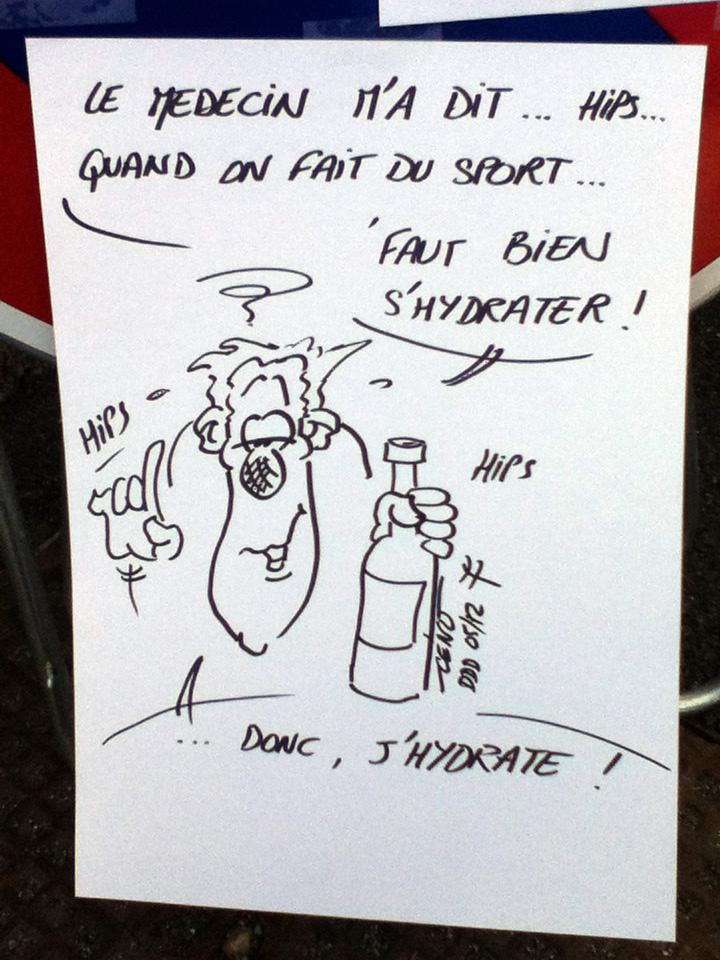 LE MEDECIN M'A DIT... HiPS...
QUAND ON FAIT DU SPORT...
'FAUT BIEN
S'HYDRATER !
HiPS
HiPS
DDD 05/12
... DONC, J'HYDRATE !